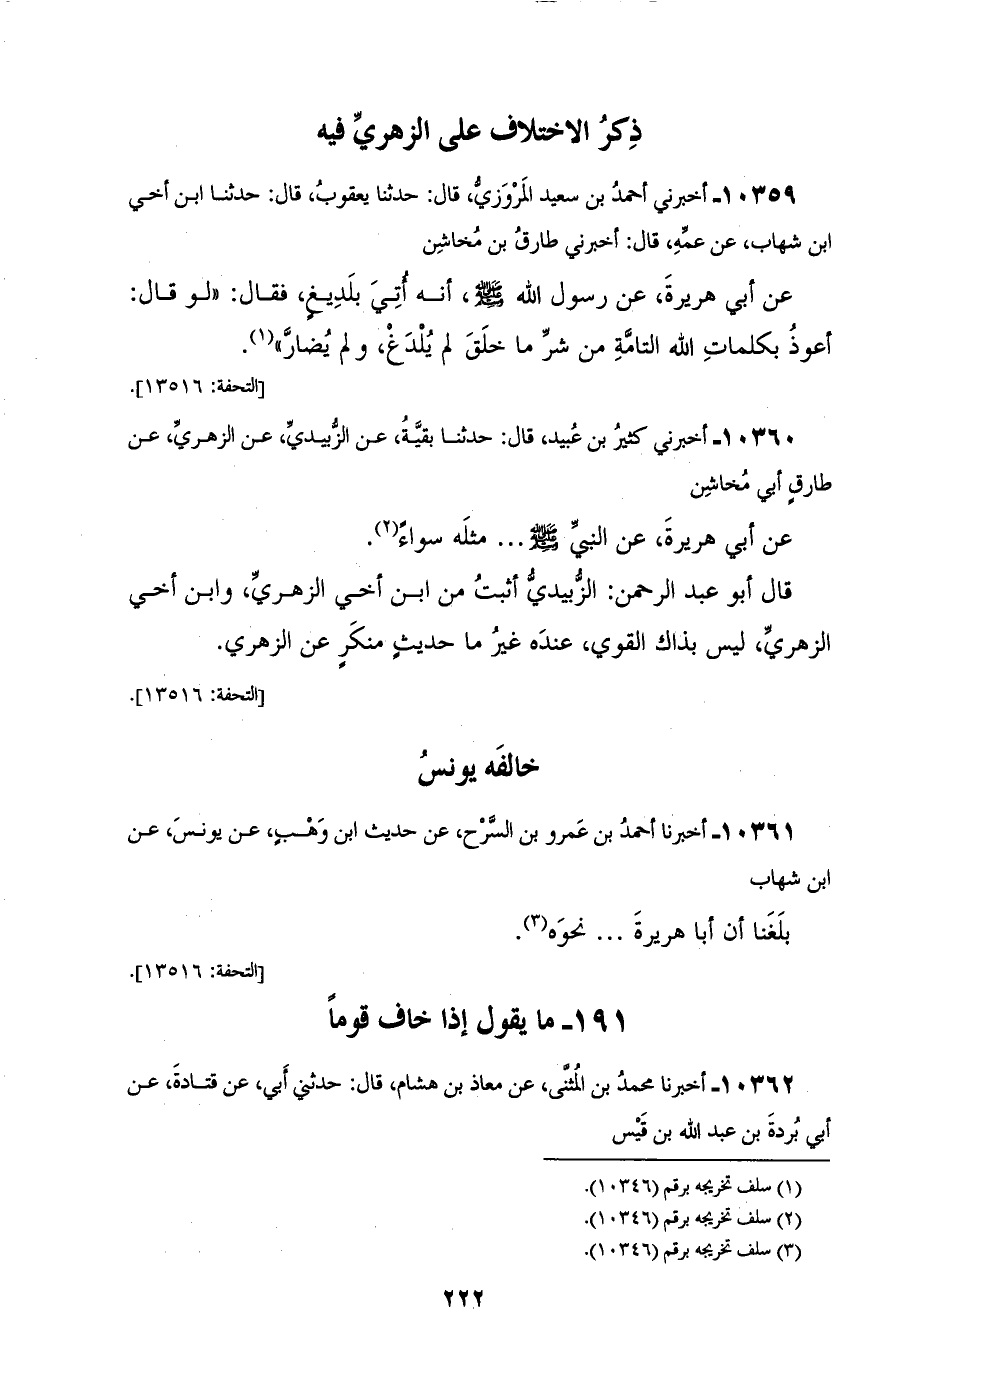 ذِكرُ الاختلاف على الزهريِّ فيه
١٠٣٥٩ـ أخبرني أحمدُ بن سعيد المَرْوَزيُّ، قال: حدثنا يعقوبُ، قال: حدثنا ابن أخي
ابن شهاب، عن عمِّهِ، قال: أخبرني طارقُ بن مُخاشِن
عن أبي هريرةَ، عن رسول الله ﷺ، أنه أُتِيَ بلَدِيغٍ، فقال: «لو قال:
أعوذُ بكلماتِ الله التامَّةِ من شرِّ ما خلَقَ لم يُلْدَغْ، ولم يُضارَّ»(١).
[التحفة: ١٣٥١٦].
١٠٣٦٠ـ أخبرني كثيرُ بن عُبيد، قال: حدثنا بقيَّةُ، عن الزُّبيديِّ، عن الزهريِّ، عن
طارقٍ أبي مُخاشِن
عن أبي هريرةَ، عن النبيِّ ﷺ ... مثلَه سواءً(٢).
قال أبو عبد الرحمن: الزُّبيديُّ أثبتُ من ابن أخي الزهريِّ، وابن أخي
الزهريِّ، ليس بذاك القوي، عندَه غيرُ ما حديثٍ منكَرٍ عن الزهري.
[التحفة: ١٣٥١٦].
خالفَه يونسُ
١٠٣٦١ـ أخبرنا أحمدُ بن عَمرو بن السَّرْح، عن حديث ابن وَهْبٍ، عن يونسَ، عن
ابن شهاب
بلَغَنا أن أبا هريرةَ ... نحوَه(٣).
[التحفة: ١٣٥١٦].
١٩١ـ ما يقول إذا خاف قوماً
١٠٣٦٢ـ أخبرنا محمدُ بن المُثنَّى، عن معاذ بن هشام، قال: حدثني أَبي، عن قتادةَ، عن
أبي بُردةَ بن عبد الله بن قَيْس
(١) سلف تخريجه برقم (١٠٣٤٦).
(٢) سلف تخريجه برقم (١٠٣٤٦).
(٣) سلف تخريجه برقم (١٠٣٤٦).
٢٢٢